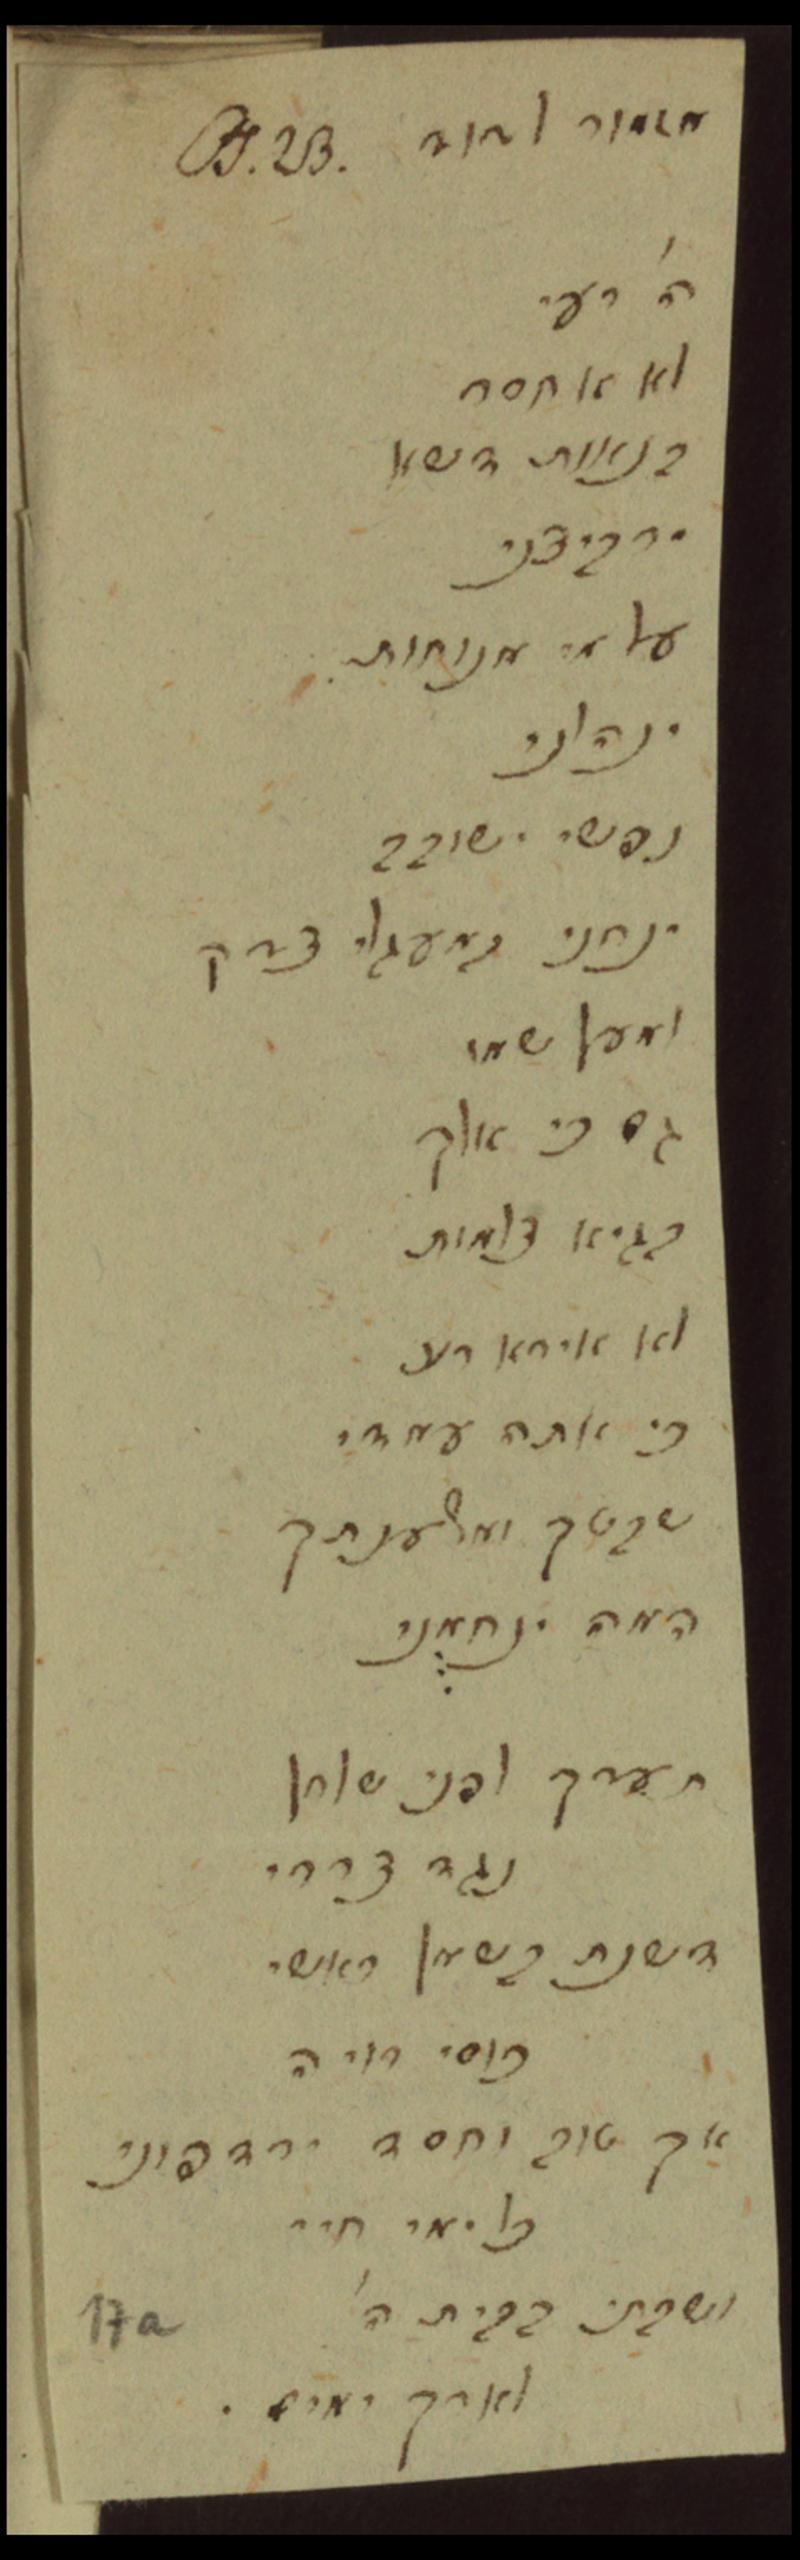 מזמור לדוד Ps. 23.
ה' רעי
לא אחסר
בנאות דשא
ירביצני
על מי מנוחות.
ינהלני
נפשי ישובב
ינחני במעגלי צדק
למען שמו
גם כי אלך
בגיא צלמות
לא אירא רע
כי אתה עמדי
שבטך ומשענתך
המה ינחמני
תערך לפני שלחן
נגד צררי
דשנת בשמן ראשי
כוסי רויה
אך טוב וחסד ירדפוני
כל ימי חיי
ושבתי בבית ה'
לארך ימים.
17a